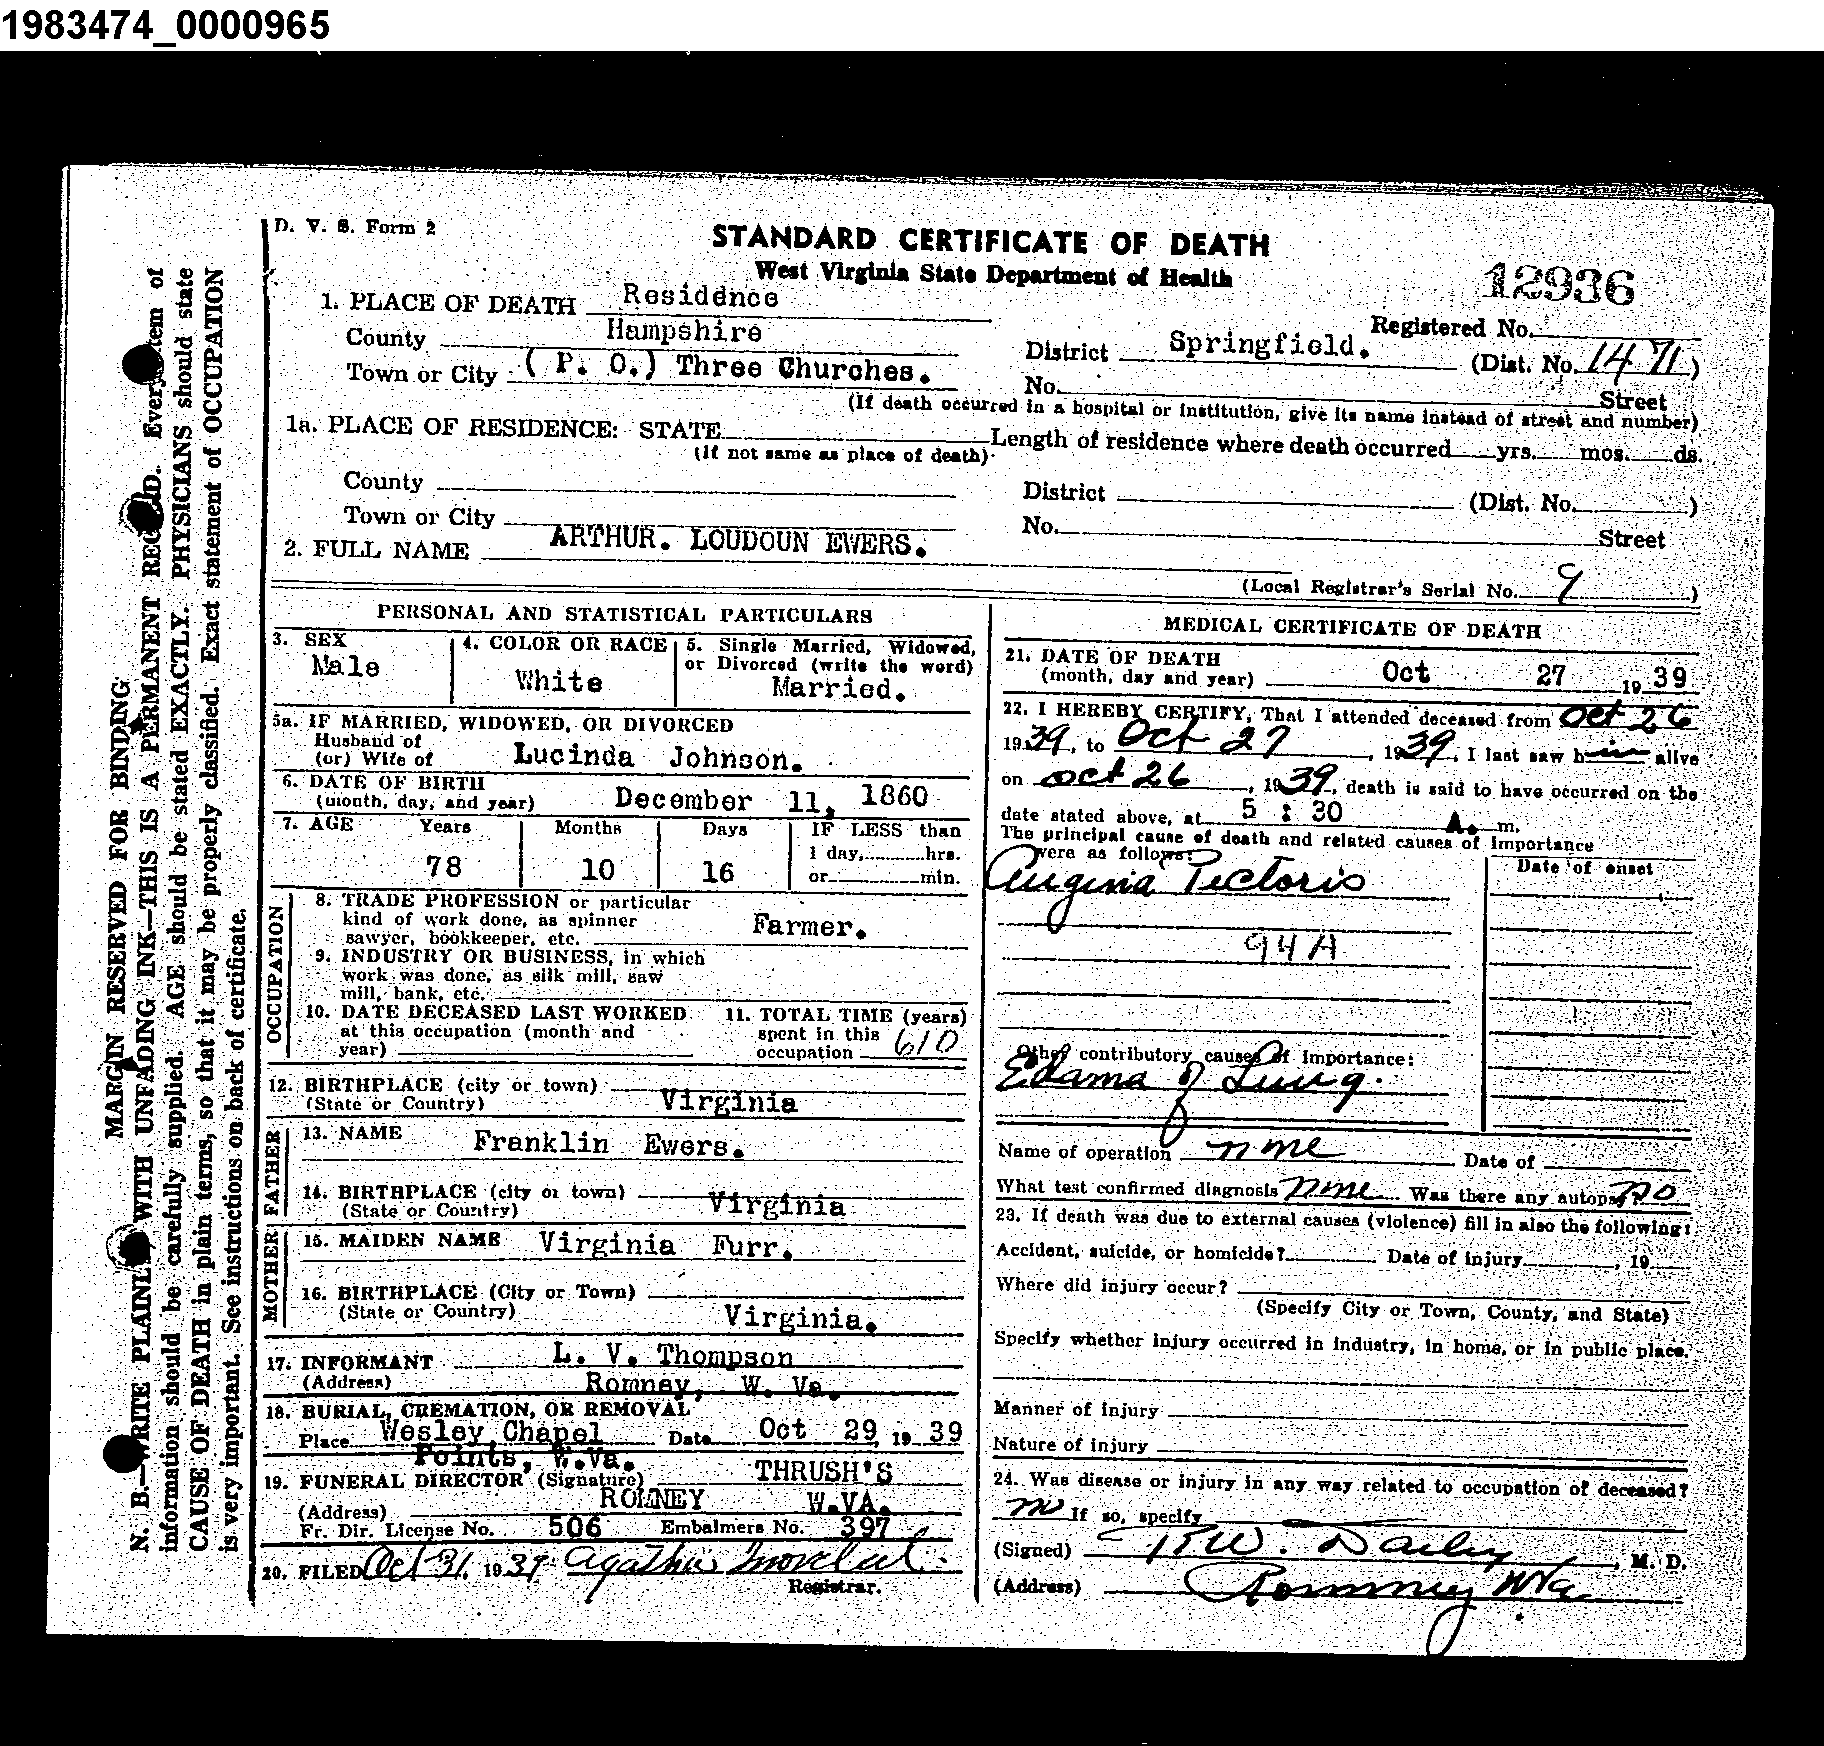 1983474_0000965
D. V. S. Form 2
STANDARD CERTIFICATE OF DEATH
West Virginia State Department of Health
12936
1. PLACE OF DEATH Residence
Registered No.
County Hampshire
District Springfield. (Dist. No. 1471)
Town or City (P. O.) Three Churches.
No. Street
(If death occurred in a hospital or institution, give its name instead of street and number)
1a. PLACE OF RESIDENCE: STATE Length of residence where death occurred yrs. mos. ds.
(If not same as place of death)
County
District (Dist. No. )
Town or City
No. Street
2. FULL NAME ARTHUR. LOUDOUN EWERS.
(Local Registrar's Serial No. 9 )
PERSONAL AND STATISTICAL PARTICULARS
3. SEX
Male
4. COLOR OR RACE
White
5. Single Married, Widowed,
or Divorced (write the word)
Married.
5a. IF MARRIED, WIDOWED, OR DIVORCED
Husband of
(or) Wife of Lucinda Johnson.
6. DATE OF BIRTH
(month, day, and year) December 11, 1860
7. AGE Years Months Days
78 10 16
IF LESS than
1 day, hrs.
or min.
OCCUPATION
8. TRADE PROFESSION or particular
kind of work done, as spinner
sawyer, bookkeeper, etc. Farmer.
9. INDUSTRY OR BUSINESS, in which
work was done, as silk mill, saw
mill, bank, etc.
10. DATE DECEASED LAST WORKED
at this occupation (month and
year)
11. TOTAL TIME (years)
spent in this
occupation 610
12. BIRTHPLACE (city or town)
(State or Country) Virginia
FATHER
13. NAME Franklin Ewers.
14. BIRTHPLACE (city or town)
(State or Country) Virginia
MOTHER
15. MAIDEN NAME Virginia Furr.
16. BIRTHPLACE (City or Town)
(State or Country) Virginia.
17. INFORMANT L. V. Thompson
(Address) Romney, W. Va.
18. BURIAL, CREMATION, OR REMOVAL
Place Wesley Chapel Date Oct 29, 19 39
Points, W.Va.
19. FUNERAL DIRECTOR (Signature) THRUSH'S
(Address) ROMNEY W.VA.
Fr. Dir. License No. 506 Embalmers No. 397
20. FILED Oct 31, 1939 Agatha
Registrar.
MEDICAL CERTIFICATE OF DEATH
21. DATE OF DEATH
(month, day and year) Oct 27 19 39
22. I HEREBY CERTIFY, That I attended deceased from Oct 26
1939, to Oct 27, 1939, I last saw him alive
on Oct 26, 1939, death is said to have occurred on the
date stated above, at 5 : 30 A. m.
The principal cause of death and related causes of importance
were as follows:
Date of onset
Angina Pectoris
94A
Other contributory causes of importance:
Edama of Lung.
Name of operation none Date of
What test confirmed diagnosis none Was there any autopsy? no
23. If death was due to external causes (violence) fill in also the following:
Accident, suicide, or homicide? Date of injury , 19
Where did injury occur?
(Specify City or Town, County, and State)
Specify whether injury occurred in industry, in home, or in public place.
Manner of injury
Nature of injury
24. Was disease or injury in any way related to occupation of deceased?
no If so, specify
(Signed) R W. Dailey, M. D.
(Address) Romney W Va.
MARGIN RESERVED FOR BINDING
N. B.—WRITE PLAINLY WITH UNFADING INK—THIS IS A PERMANENT RECORD. Every item of
information should be carefully supplied. AGE should be stated EXACTLY. PHYSICIANS should state
CAUSE OF DEATH in plain terms, so that it may be properly classified. Exact statement of OCCUPATION
is very important. See instructions on back of certificate.